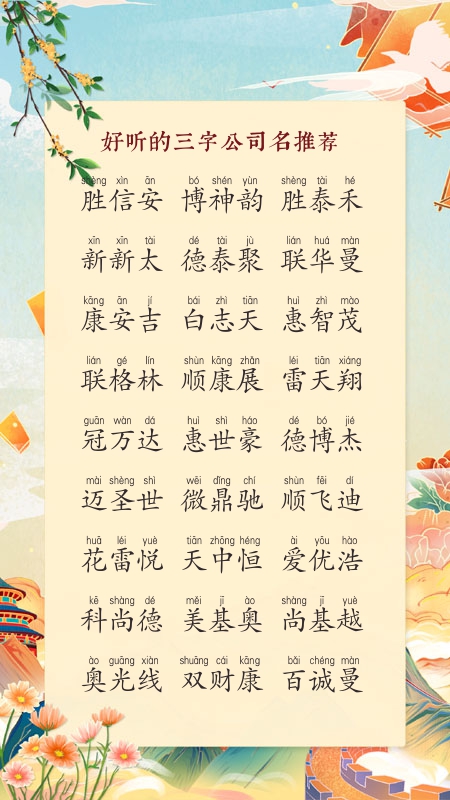 好听的三字公司名推荐
shèng xìn ān bó shén yùn shèng tài hé
胜信安 博神韵 胜泰禾
xīn xīn tài dé tài jù lián huá màn
新新太 德泰聚 联华曼
kāng ān jí bái zhì tiān huì zhì mào
康安吉 白志天 惠智茂
lián gé lín shùn kāng zhǎn léi tiān xiáng
联格林 顺康展 雷天翔
guān wàn dá huì shì háo dé bó jié
冠万达 惠世豪 德博杰
mài shèng shì wēi dǐng chí shùn fēi dí
迈圣世 微鼎驰 顺飞迪
huā léi yuè tiān zhōng héng ài yōu hào
花雷悦 天中恒 爱优浩
kē shàng dé měi jī ào shàng jī yuè
科尚德 美基奥 尚基越
ào guāng xiàn shuāng cái kāng bǎi chéng màn
奥光线 双财康 百诚曼